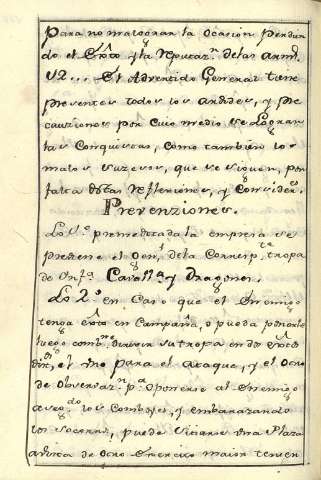 para no malograr la ocasion perdien
do el Exto y la Reputazn de las armas
V2... El Advertido General tiene
presentes todos los ardides, y pre
cauziones por cuio medio se logran
las Conquistas, como tambien los
malos suzesos, que se siguen, por
falta de estas Reflexiones, y Considers
Prevenziones.
Lo 1o premeditada la empresa se
previene el Genl de la Correspte tropa
de Infa Cavallla y Dragones.
Lo 2o en Caso que el Enemigo
tenga exto en Campaña, o pueda ponerlo
luego combne dividir su tropa en dos extos
el uno para el ataque, y el otro
de observazn pa oponerse al Enemigo
los Comboyes, y embarazando
los socorros, puede sitiarse una Plaza
de otro Exercito maior tenien